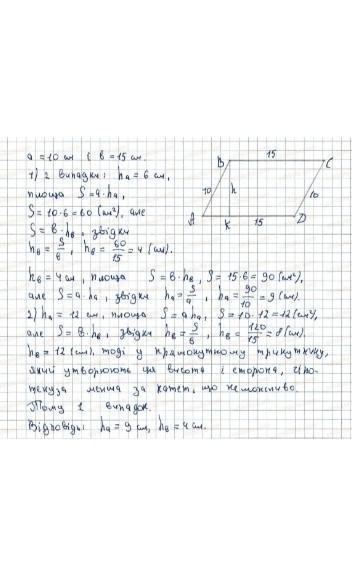 a = 10 см і b = 15 см.
1) 2 випадки: hₐ = 6 см,
площа S = a·hₐ,
S = 10·6 = 60 (см²), але
S = b·h_b, звідки
h_b = S/b, h_b = 60/15 = 4 (см).
B 15 C
10 h 10
A K 15 D
h_b = 4 см, площа S = b·h_b, S = 15·6 = 90 (см²),
але S = a·hₐ, звідки hₐ = S/a, hₐ = 90/10 = 9 (см).
2) hₐ = 12 см, площа S = a hₐ, S = 10·12 = 12 (см²),
але S = b·h_b, звідки h_b = S/b, h_b = 120/15 = 8 (см).
h_b = 12 (см), тоді у прямокутному трикутнику,
який утворюють ця висота і сторона, гіпо-
тенуза менша за катет, що неможливо.
Тому 1 випадок.
Відповідь: hₐ = 9 см, h_b = 4 см.